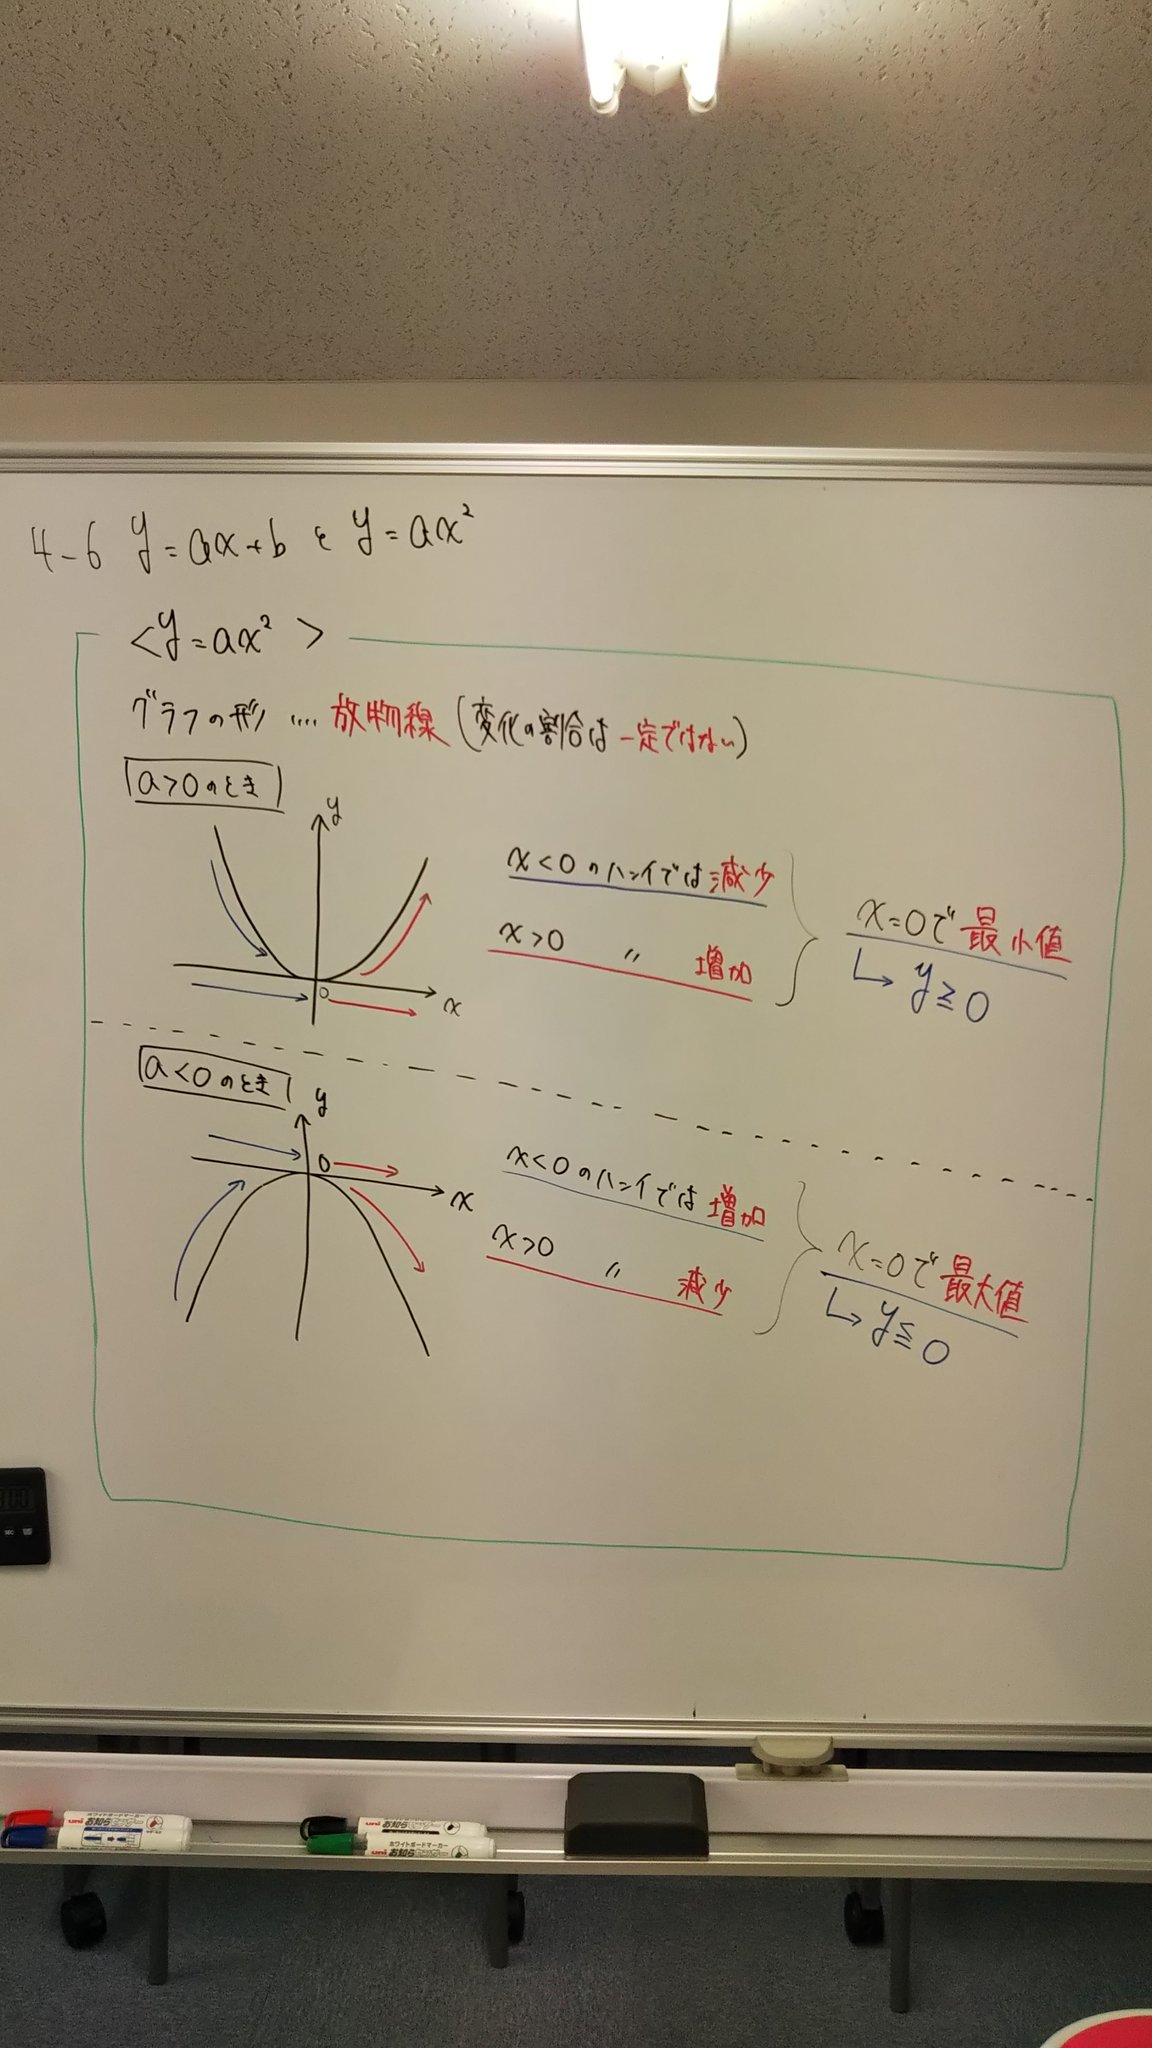 4-6 y=ax+b と y=ax²
<y=ax²>
グラフの形 …. 放物線 (変化の割合は一定ではない)
a>0のとき
y
x<0 のハンイでは減少
x>0 〃 増加
x=0で最小値
↳ y≧0
0
x
a<0のとき
y
0
x
x<0 のハンイでは増加
x>0 〃 減少
x=0で最大値
↳ y≦0
SEC
uni
ホワイトボードマーカー
uni
ホワイトボードマーカー
uni